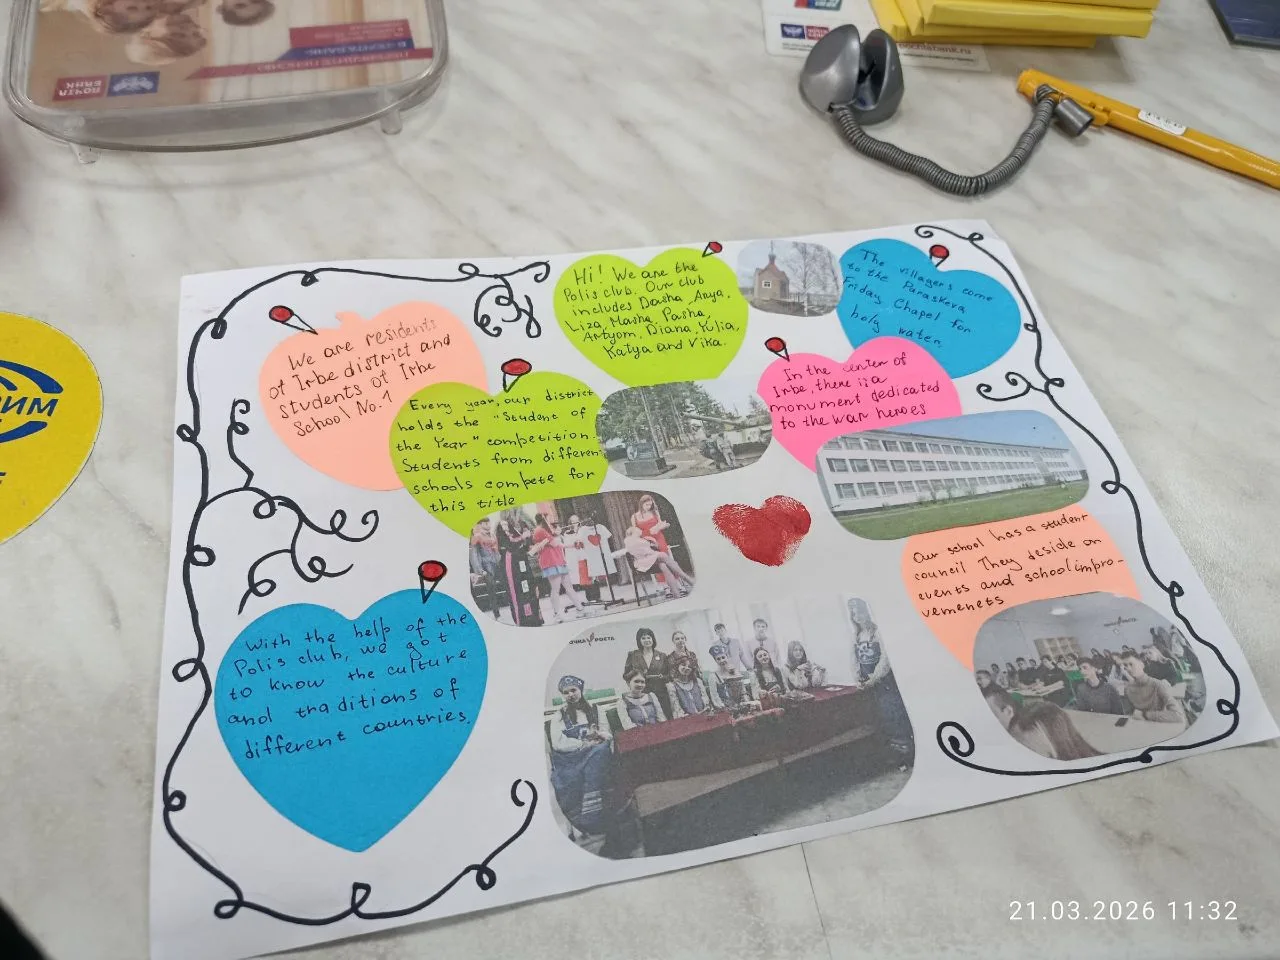 ПОЧТА
БАНК
pochtabank.ru
РИМ
Hi! We are the
Polis club. Our club
includes Dasha, Anya,
Liza, Masha, Pasha,
Artyom, Diana, Yulia,
Katya and Vika.
The villagers come
to the Paraskeva
Friday Chapel for
holy water.
We are residents
of Irbe district and
students of Irbe
School No.1
Every year, our district
holds the "Student of
the Year" competition.
Students from different
schools compete for
this title
In the center of
Irbe, there is a
monument dedicated
to the war heroes
Our school has a student
council They deside on
events and school impro-
vemenets
With the help of the
Polis club, we got
to know the culture
and traditions of
different countries.
ТОЧКА РОСТА
21.03.2026 11:32